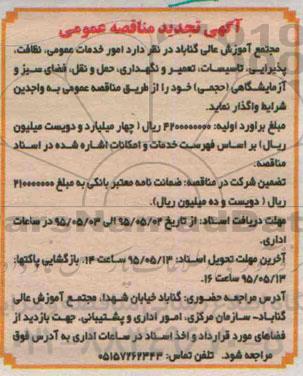 آگهی تجدید مناقصه عمومی
مجتمع آموزش عالی گناباد در نظر دارد امور خدمات عمومی، نظافت،
پذیرایی، تاسیسات، تعمیر و نگهداری، حمل و نقل، فضای سبز و
آزمایشگاهی (حجمی) خود را از طریق مناقصه عمومی به واجدین
شرایط واگذار نماید.
مبلغ برآورد اولیه: ۴۲۰۰۰۰۰۰۰۰ ریال ( چهار میلیارد و دویست میلیون
ریال) بر اساس فهرست خدمات و امکانات اشاره شده در اسناد
مناقصه.
تضمین شرکت در مناقصه: ضمانت نامه معتبر بانکی به مبلغ ۲۱۰۰۰۰۰۰۰
ریال ( دویست و ده میلیون ریال).
مهلت دریافت اسناد: از تاریخ ۹۵/۰۵/۰۲ الی ۹۵/۰۵/۰۳ در ساعات
اداری.
آخرین مهلت تحویل اسناد: ۹۵/۰۵/۱۳ ساعت ۱۴. بازگشایی پاکتها:
۹۵/۰۵/۱۳ ساعت ۱۶.
آدرس مراجعه حضوری: گناباد خیابان شهدا، مجتمع آموزش عالی
گناباد- سازمان مرکزی، امور اداری و پشتیبانی. جهت بازدید از
فضاهای مورد قرارداد و اخذ اسناد در ساعات اداری به آدرس فوق
مراجعه شود. تلفن تماس: ۰۵۱۵۷۲۶۲۳۴۳